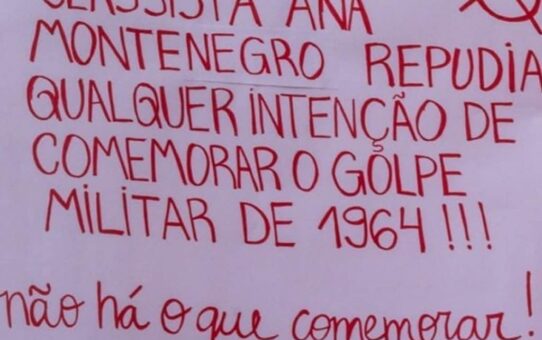 CLASSISTA ANA
MONTENEGRO REPUDIA
QUALQUER INTENÇÃO DE
COMEMORAR O GOLPE
MILITAR DE 1964!!!
não há o que comemorar!